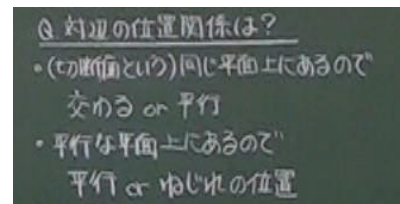 Q 対辺の位置関係は?
・(切断面という)同じ平面上にあるので
交わる or 平行
・平行な平面上にあるので
平行 or ねじれの位置